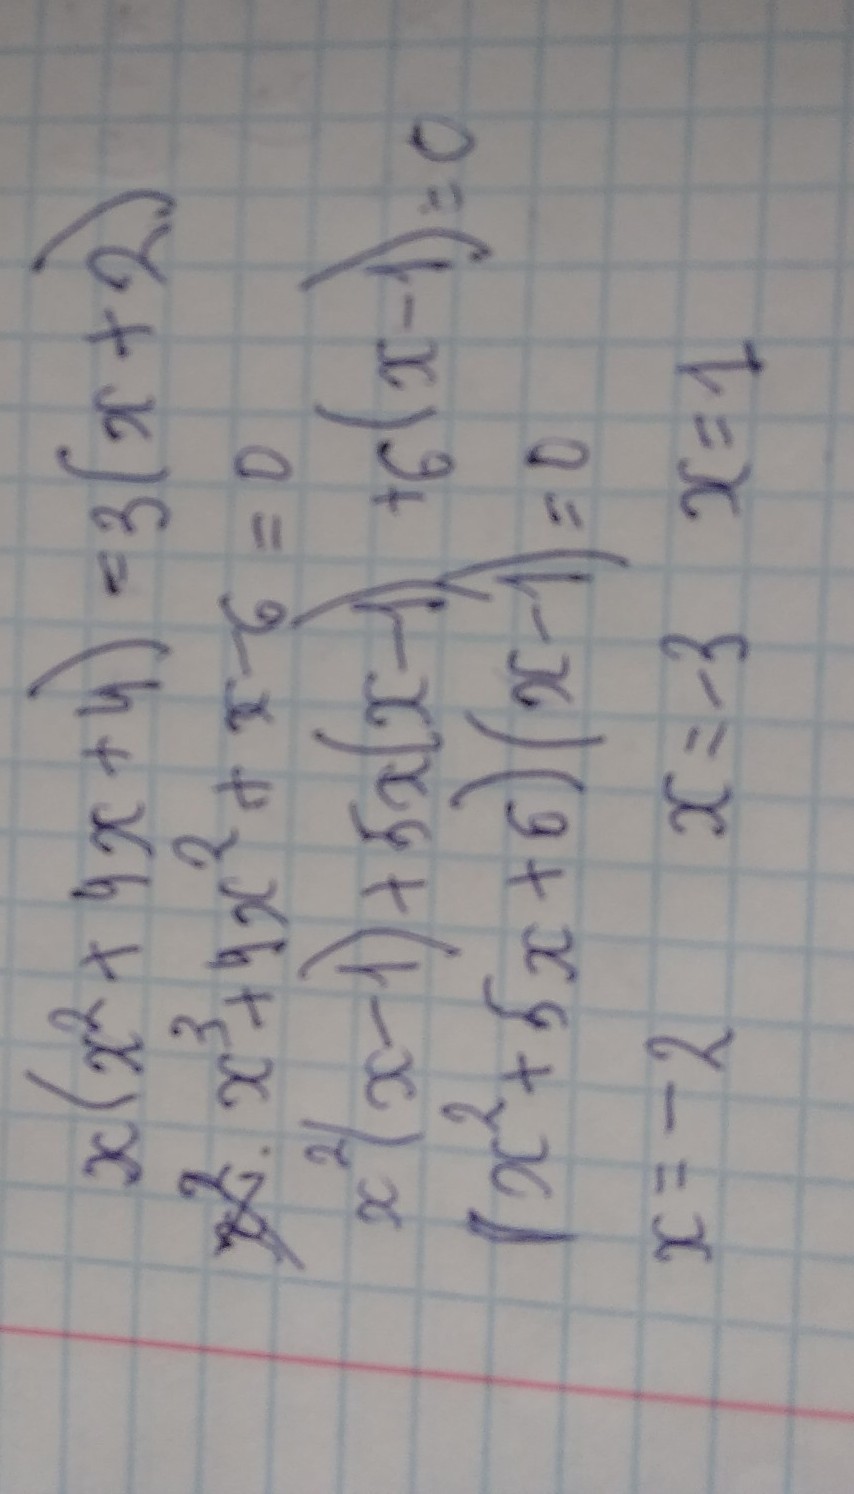 x(x²+4x+4)=3(x+2)
x³+4x²+x-6=0
x²(x-1)+5x(x-1)+6(x-1)=0
(x²+5x+6)(x-1)=0
x=-2 x=-3 x=1